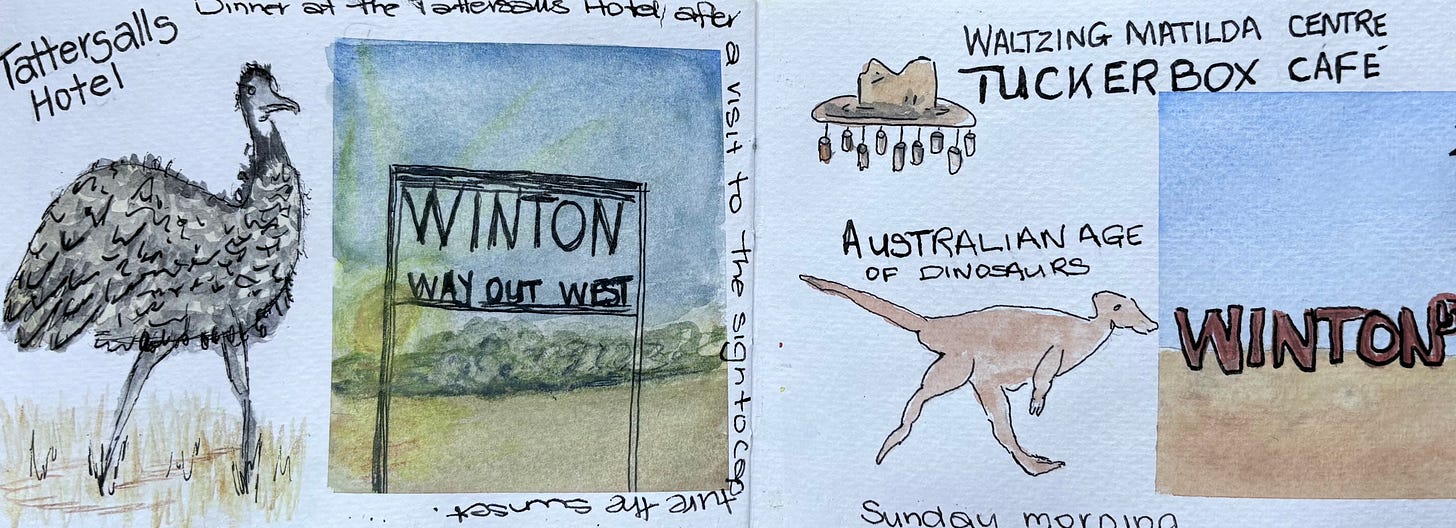 Tattersalls
Hotel
Dinner at the Tattersalls Hotel, after
a visit to the sign to cap
ture the sunset.
WINTON
WAY OUT WEST
WALTZING MATILDA CENTRE
TUCKERBOX CAFÉ
AUSTRALIAN AGE
OF DINOSAURS
WINTON
Sunday morning